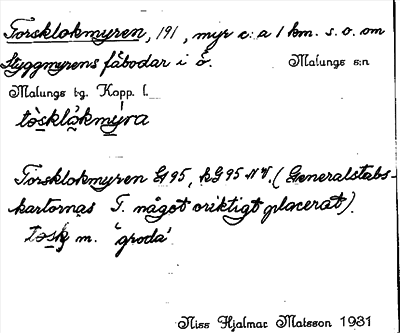 Torsklokmyren, 191, myr c:a 1 km. s.o. om
Styggmyrens fäbodar i ö. Malungs s:n
Malungs tg. Kopp. l.
tòsklòkmýra
Torsklokmyren G 95, kG 95 NV. (Generalstabs-
kartornas T. något oriktigt placerat).
tosk m. "groda"
Niss Hjalmar Matsson 1931